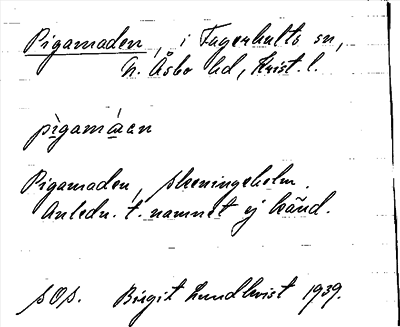 Pigamaden, i Fagerhults sn,
N. Åsbo hd, Krist. l.
pìgamáan
Pigamaden, skeningeholm.
Anledn. t. namnet ej känd.
sOs. Birgit Lundkvist 1939.